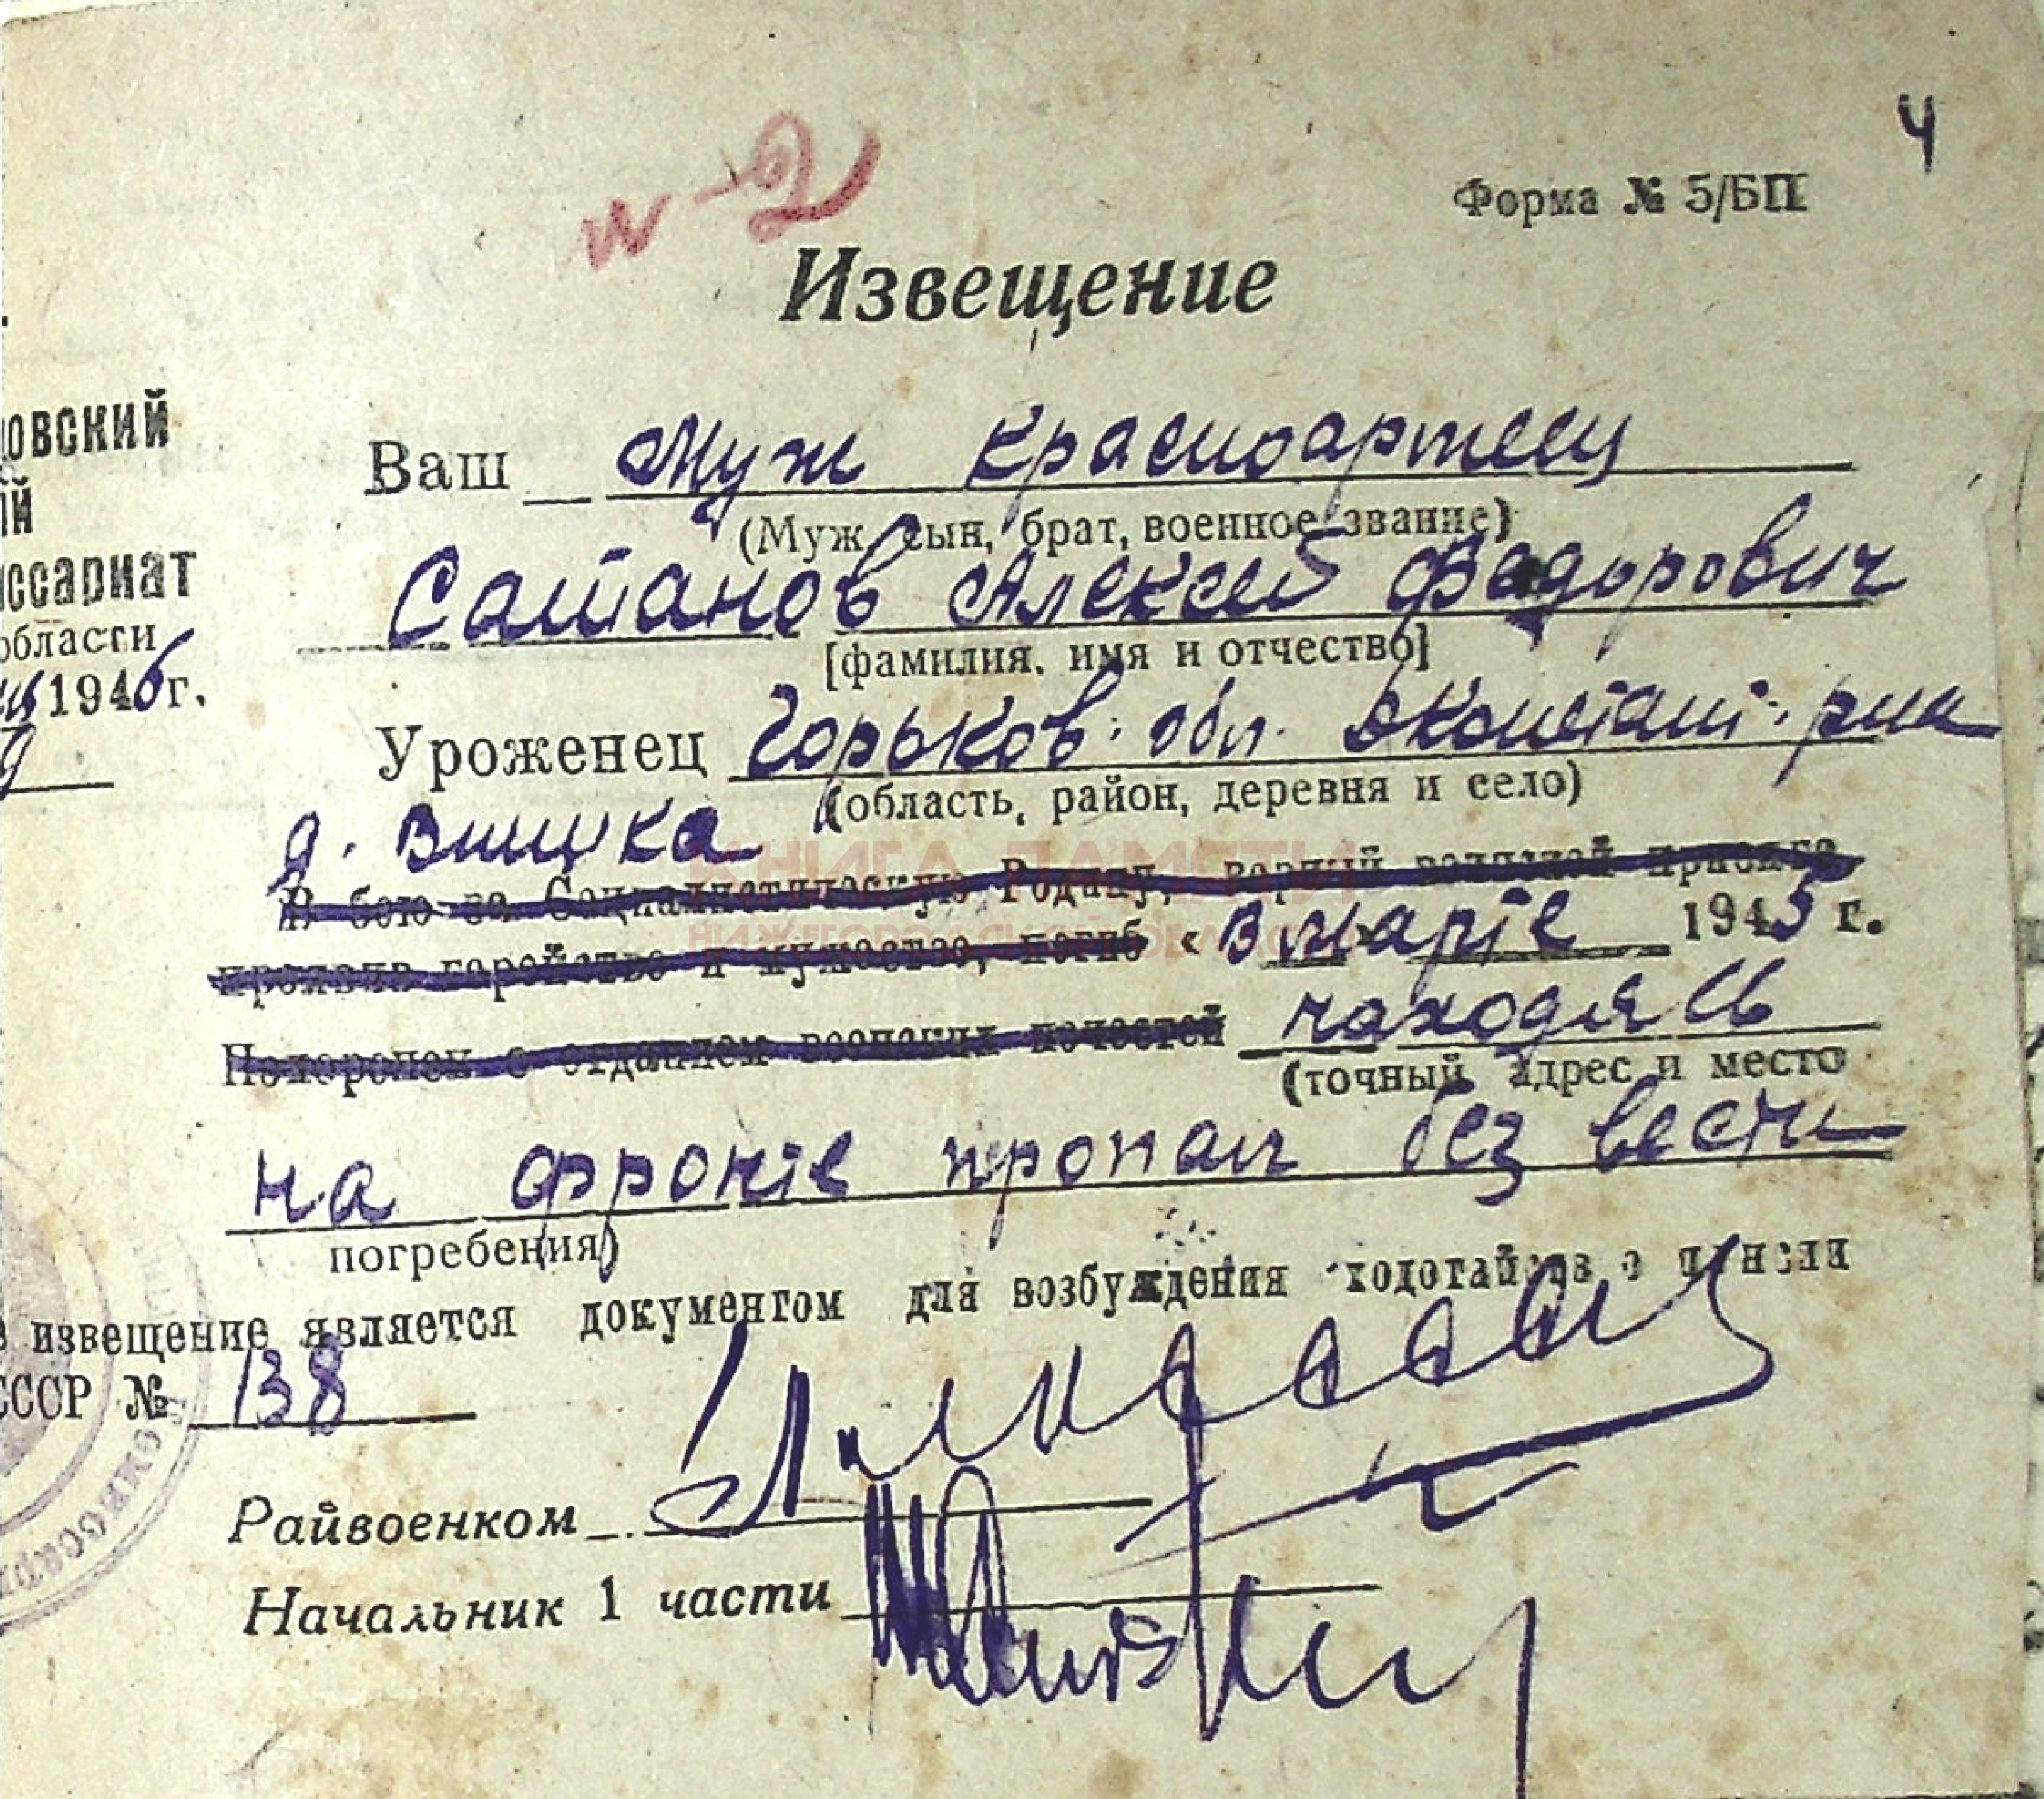 4
№ 2
Форма № 5/БП
Извещение
овский
ый
ссариат
области
1946 г.
Ваш муж красноармеец
(Муж, сын, брат, военное звание)
Сатанов Алексей Федорович
[фамилия, имя и отчество]
Уроженец Горьков. обл. Д Констант. р-на
(область, район, деревня и село)
д. Вишука
КНИГА ПАМЯТИ
НИЖЕГОРОДСКОЙ ОБЛАСТИ
В бою за Социалистическую Родину, верный воинской присяге,
проявив геройство и мужество, погиб « в марте 1943 г.
Похоронен с отданием воинских почестей находясь
(точный адрес и место
на фронте пропал без вести
погребения)
е извещение является документом для возбуждения ходотайств о пенсии
СССР № 138
Райвоенком
Начальник 1 части